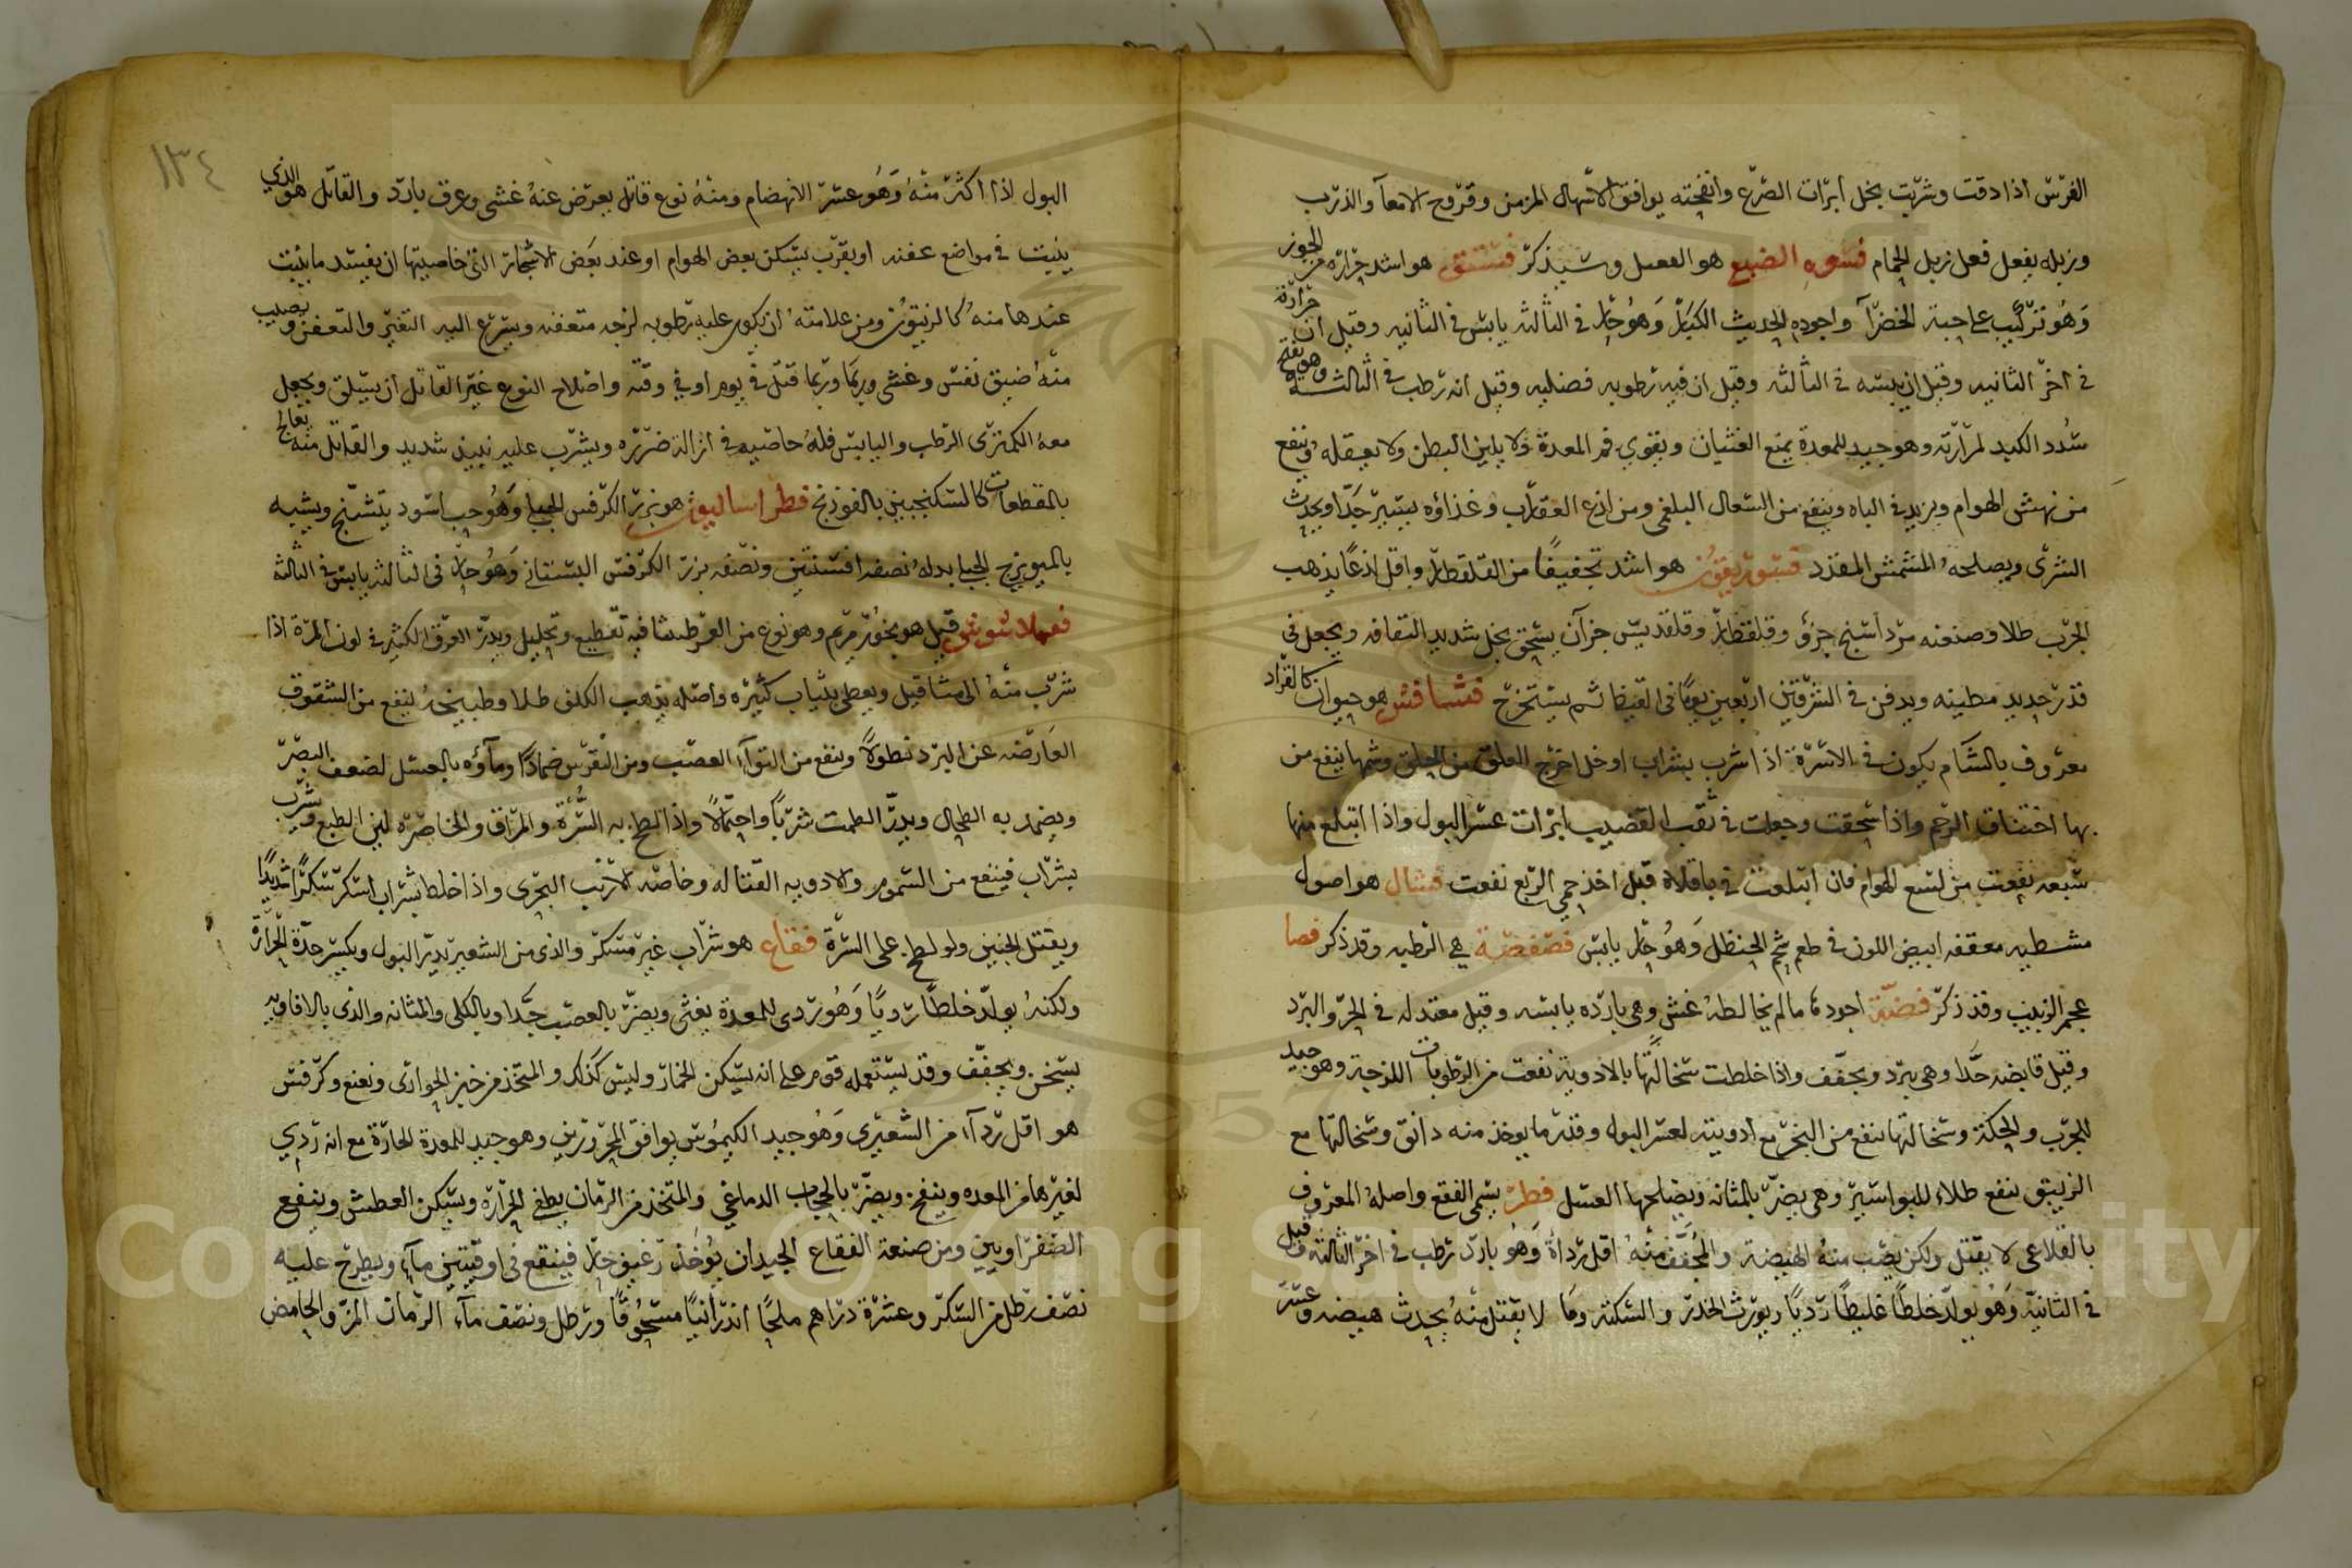 الفرس اذا دقت وشربت بخل ابرات الصرع وانفحته يوافق الاسهال المزمن وقروح الامعآ والذرب
وزبله يفعل فعل زبل الحمام فسوه الضبع هو الفعسل وسيذكر فستق هو اشد حرارة من الجوز
وهو تركيب على حبة الخضرآ واجوده الحديث الكبار وهو حار في الثالثه يابس في الثانيه وقيل ان حرارته
في اخر الثانيه وقيل ان يبسه في الثالثه وقيل ان فيه رطوبه فضليه وقيل انه رطب في الثالثه وهو يفتح
سدد الكبد لمرارته وهو جيد للمعدة يمنع الغثيان ويقوي فم المعدة ولا يلين البطن ولا يعقله وينفع
من نهش الهوام ويزيد في الباه وينفع من السعال البلغمي ومن لذع العقارب وغذاؤه يسير جدا ويحدث
الشرى ويصلحه المشمش المقدد فسوريقون هو اشد تجفيفا من القلقطار واقل لذعا يذهب
الجرب طلا وصنعته مرداسنج جزؤ وقلقطار وقلقديس جزآن يسحق بخل شديد الثقافه ويجعل في
قدر جديد مطينه ويدفن في السرقين اربعين يوما في القيظ ثم يستخرج فسافس هو حيوان كالقراد
معروف بالشآم يكون في الاسرة اذا شرب بشراب او خل اخرج العلق من الحلق وشمها ينفع من
بها اختناق الرحم واذا سحقت وجعلت في ثقب القضيب ابرات عسر البول واذا ابتلع منها
سبعه نفعت من لسع الهوام فان ابتلعت في باقلاة قبل اخذ حمى الربع نفعت فشال هو اصول
مشطبه معقفه ابيض اللون في طعم شحم الحنظل وهو حار يابس فصفصة هي الرطبه وقد ذكر فصا
عجم الزبيب وقد ذكر فضة اجودها ما لم يخالطه غش وهي بارده يابسه وقيل معتدله في الحر والبرد
وقيل قابضه جدا وهي تبرد وتجفف واذا خلطت سحالتها بالادوية نفعت من الرطوبات اللزجة وهو جيد
للجرب والحكة وسحالتها تنفع من البخر مع ادويته لعسر البول وقدر ما يوخذ منه دانق وسحالتها مع
الزيبق ينفع طلاء للبواسير وهي يضر بالمثانه ويصلحها العسل فطر يسمى الفقع واصله المعروف
بالقلاعى لا يقتل ولكن يصب منه الهيضة والمجفف منه اقل رداءة وهو بارد رطب في اخر الثالثه وقيل
في الثانية وهو يولد خلطا غليظا رديا ويورث الخدر والسكتة وما لا يقتل منه يحدث هيضه وعسر
١٣٤
البول اذا اكثر منه وهو عسر الانهضام ومنه نوع قاتل يعرض عنه غشي وعرق بارد والقاتل هو الذي
ينبت في مواضع عفنه او بقرب بسكن بعض الهوام او عند بعض الاشجار التي خاصيتها ان يفسد ما ينبت
عندها منه كالزيتون ومن علامته ان يكون عليه رطوبه لزجه متعفنه ويسرع اليه التغير والتعفن ويصيب
منه ضيق نفس وغشي وربما قتل في يومه او في وقته واصلاح النوع غير القاتل ان يسلق ويجعل
معه الكمثرى الرطب واليابس فله خاصيه في ازالة ضرره ويشرب عليه نبيذ شديد والقاتل منه يعالج
بالمقطعات كالسكنجبين بالفوذنج فطراساليون هو بزر الكرفس الجبلي وهو حب اسود يتشنج ويشبه
بالميويزج الجبلي بدله نصفه افسنتين ونصفه بزر الكرفس البستاني وهو حار في الثالثه يابس في الثالثه
فعملاسوس قيل هو بخور مريم وهو نوع من العرطنيثا فيه تقطيع وتحليل ويدر العرق الكثير في لون المرة اذا
شرب منه الى مثاقيل ويغطى بثياب كثيره واصله يذهب الكلف طلا وطبيخه ينفع من الشقوق
العارضه عن البرد نطولا وينفع من التوآء العصب ومن النقرس ضمادا ومآؤه بالعسل لضعف البصر
ويضمد به الطحال ويدر الطمث شربا واحتمالا واذا لطخ به السرة والمراق والخاصره لين الطبع ويشرب
بشراب فينفع من السموم والادويه القتاله وخاصه الارنب البحرى واذا خلط بشراب اسكر سكرا شديدا
ويقتل الجنين ولو لطخ على السرة فقاع هو شراب غير مسكر والذي من الشعير يدر البول ويكسر حدة الحرارة
ولكنه يولد خلطا رديا وهو ردى للمعدة يغثي ويضر بالعصب جدا وبالكلى والمثانه والذي بالافاويه
يسخن ويجفف وقد يستعمله قوم على انه يسكن الخمار وليس كذلك والمتخذ من خبز الحوارى ونعنع وكرفس
هو اقل ردآءة من الشعيرى وهو جيد الكيموس يوافق المحرورين وهو جيد للمعدة الحارة مع انه ردي
لغيرها من المعده وينفخ ويضر بالحجاب الدماغي والمتخذ من الرمان يطفي الحراره ويسكن العطش وينفع
الصفراويين ومن صنعة الفقاع الجيد ان يوخذ رغيف حار فينقع في اوقيتين مآء ويطرح عليه
نصف رطل من السكر وعشرة دراهم ملحا اندرانيا مسحوقا ورطل ونصف مآء الرمان المر والحامض